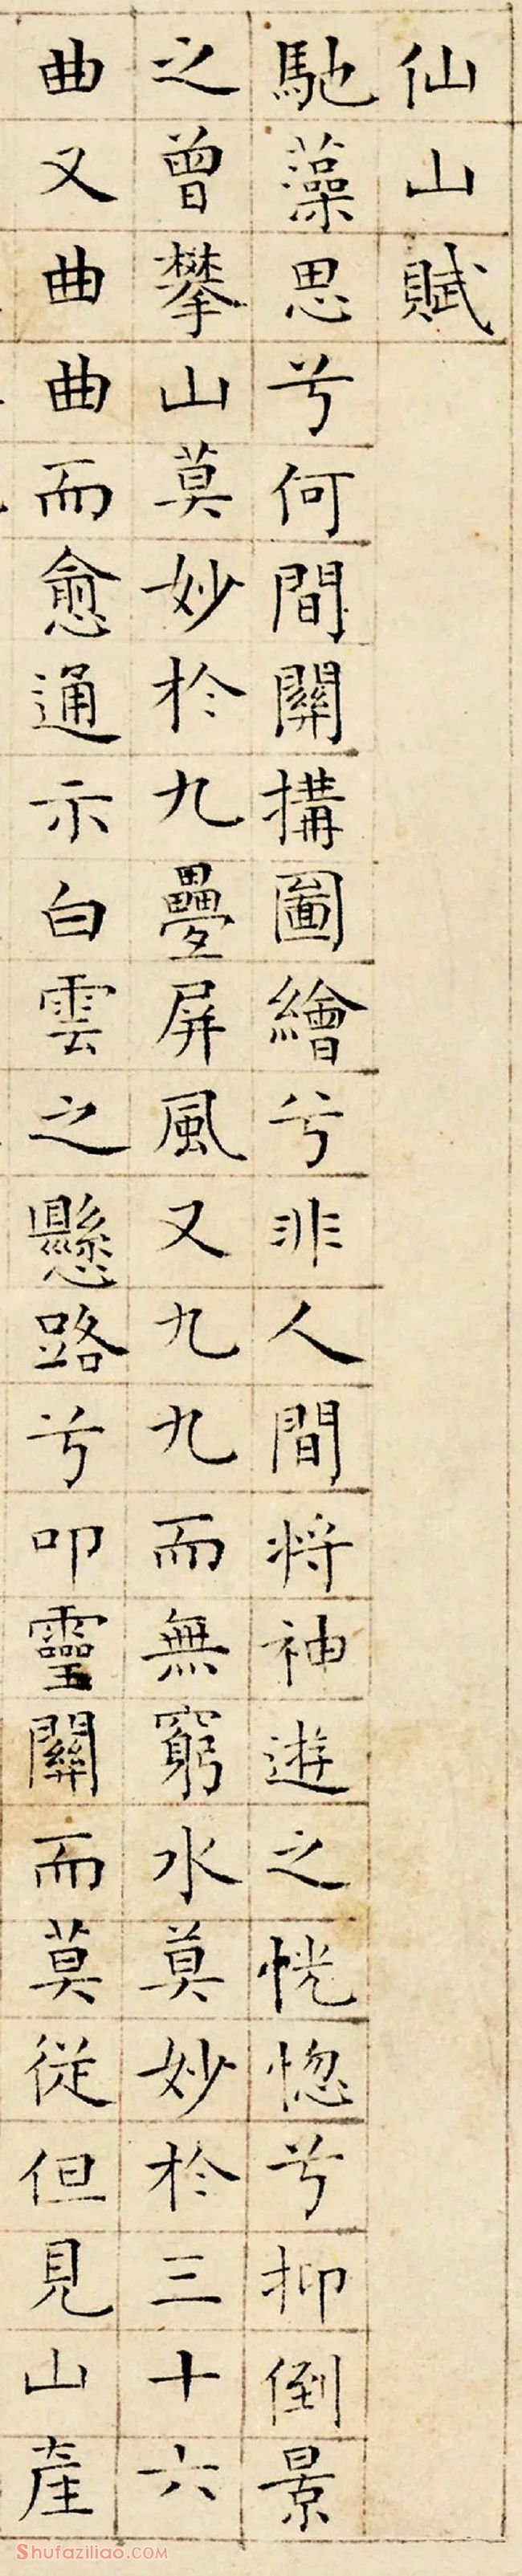 仙山賦
馳藻思兮何間關搆圖繪兮非人間将神遊之恍惚兮抑倒景
之曾攀山莫妙於九疊屏風又九九而無窮水莫妙於三十六
曲又曲曲而愈通示白雲之懸路兮叩靈關而莫從但見山產
Shufaziliao.com